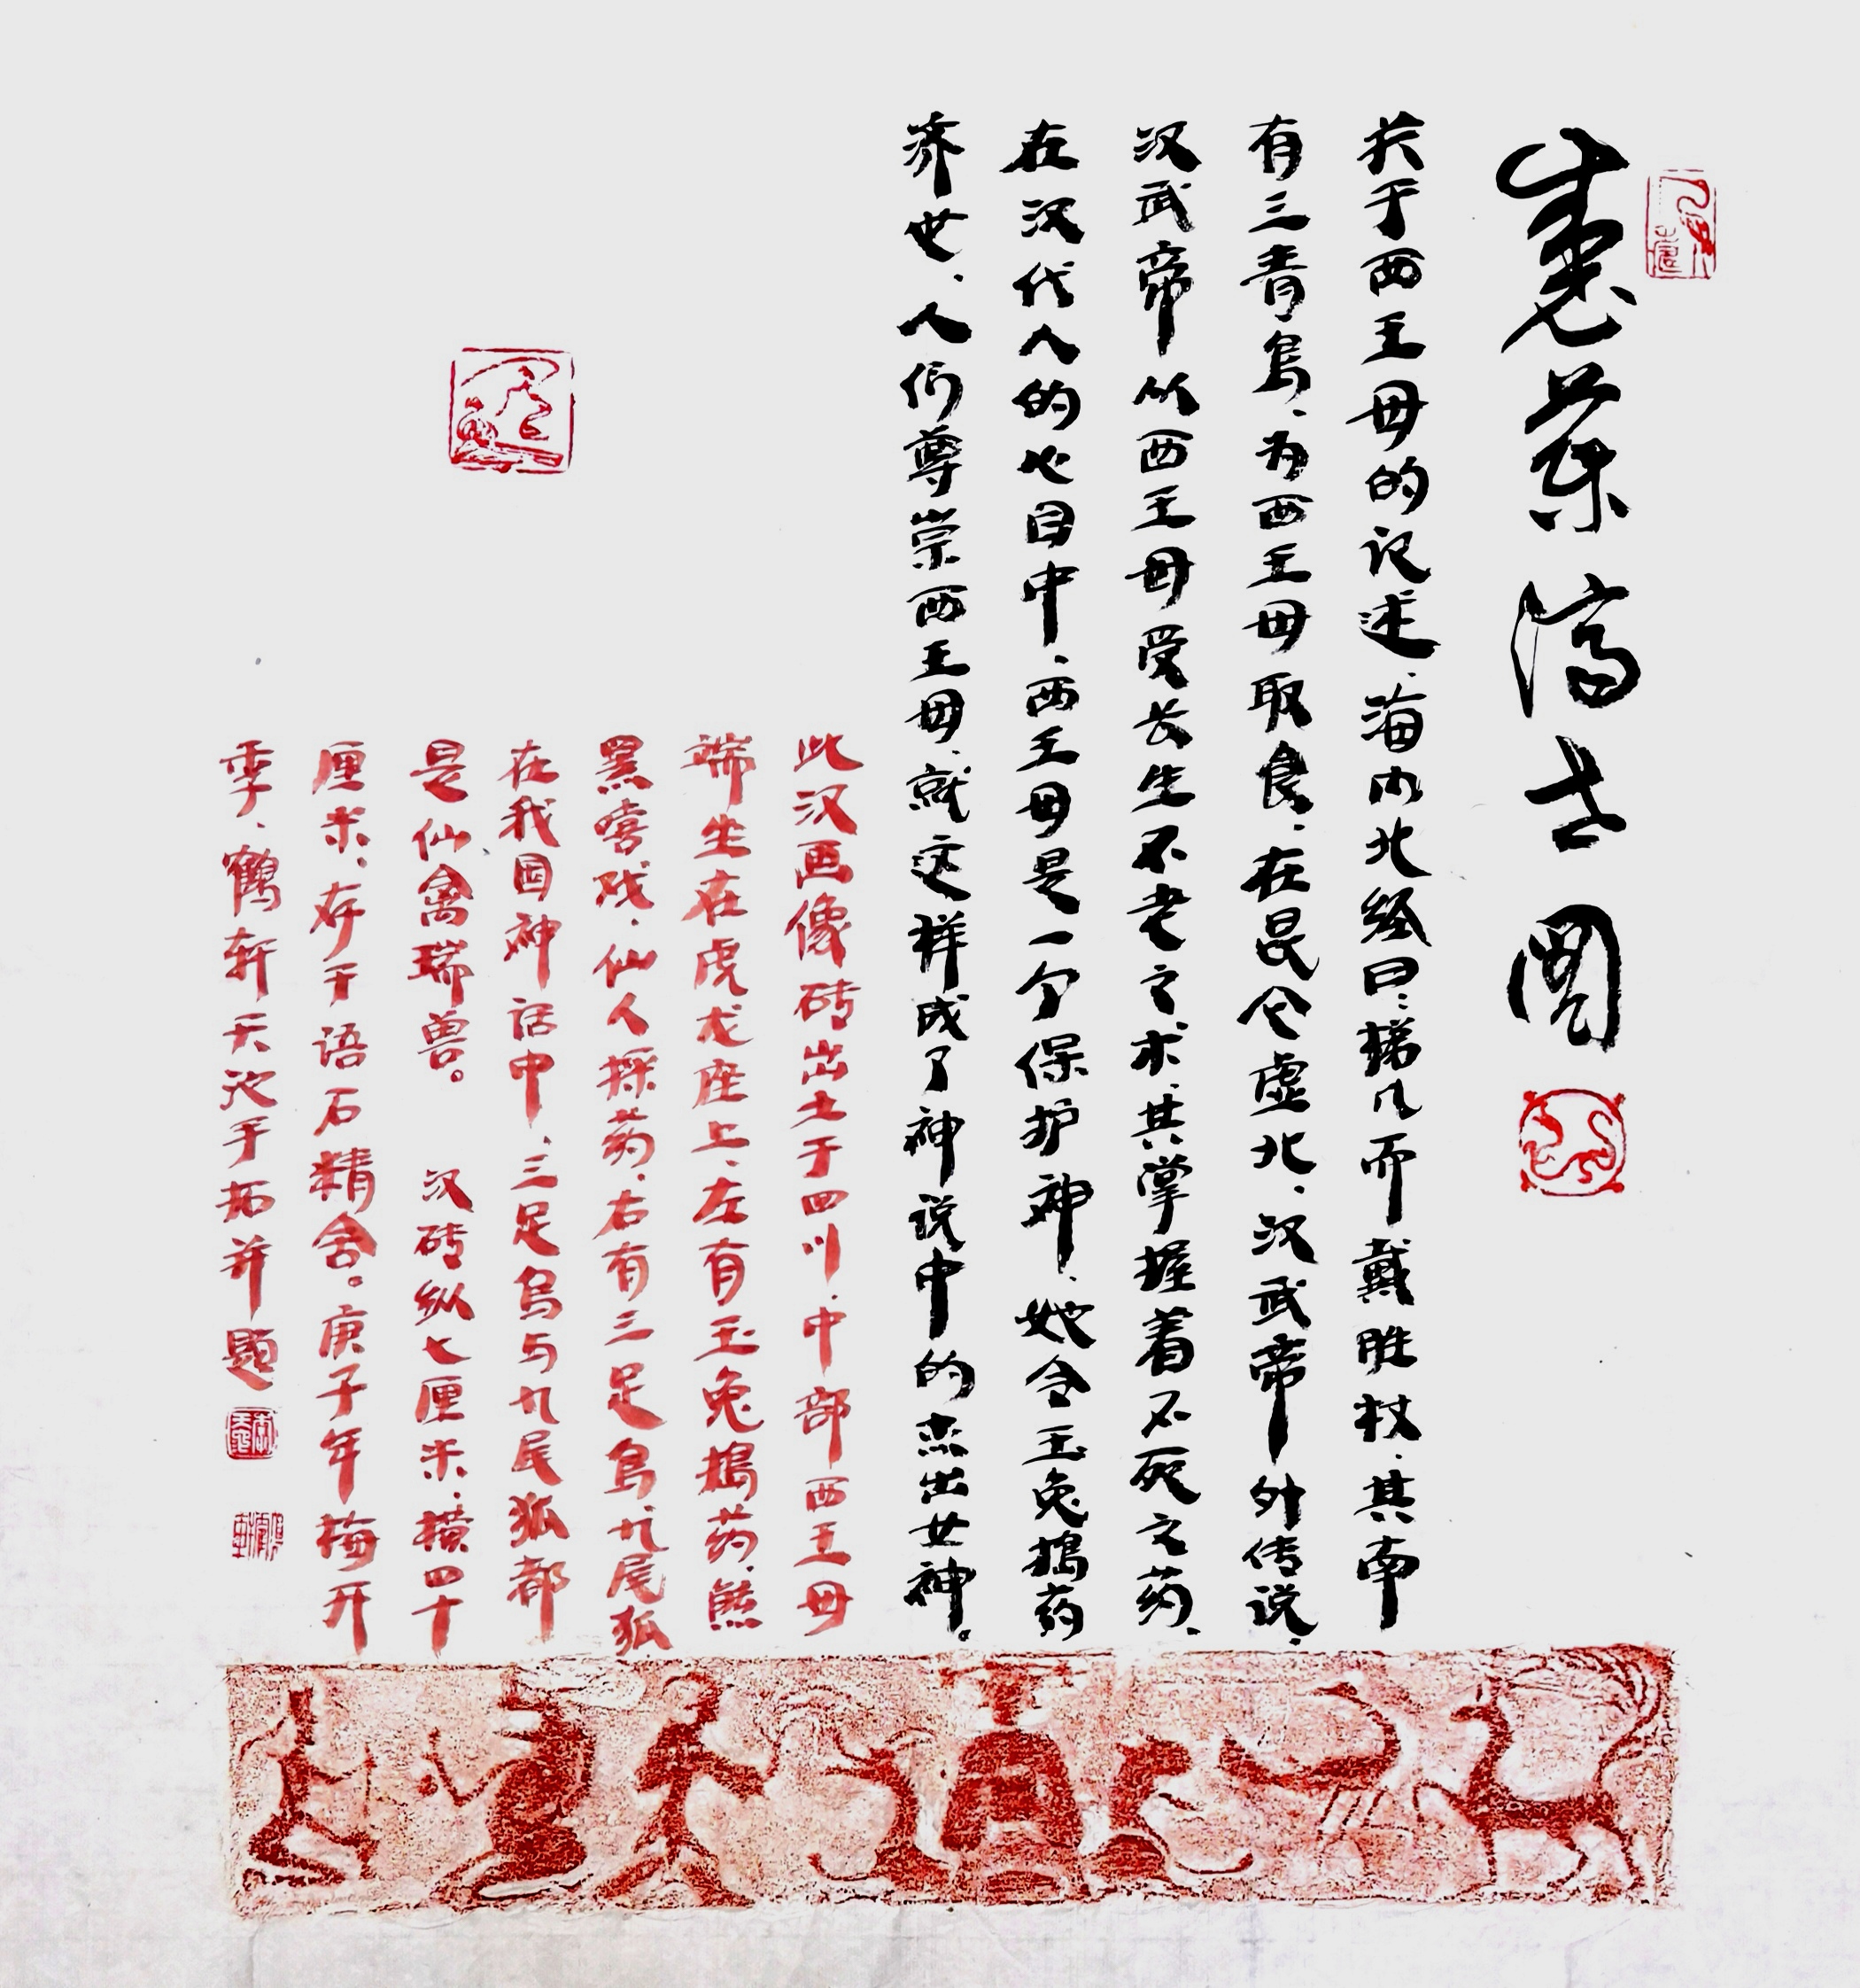 製藥濟世圖
关于西王母的记述、海内北经曰：梯几而戴胜杖、其南
有三青鸟、为西王母取食、在昆仑虚北、汉武帝外传说、
汉武帝从西王母受长生不老之术、其掌握着不死之药、
在汉代人的心目中、西王母是一个保护神、她令玉兔搗药
济世、人们尊崇西王母、就这样成了神说中的杰出女神。
此汉画像砖出土于四川、中部西王母
端坐在虎龙座上、左有玉兔搗药、熊
罴嘻戏、仙人採药、右有三足乌、九尾狐
在我国神话中、三足乌与九尾狐都
是仙禽瑞兽。 汉砖纵七厘米、横四十
厘米、存于语石精舍。庚子年梅开
季、鹤轩天池手拓并题